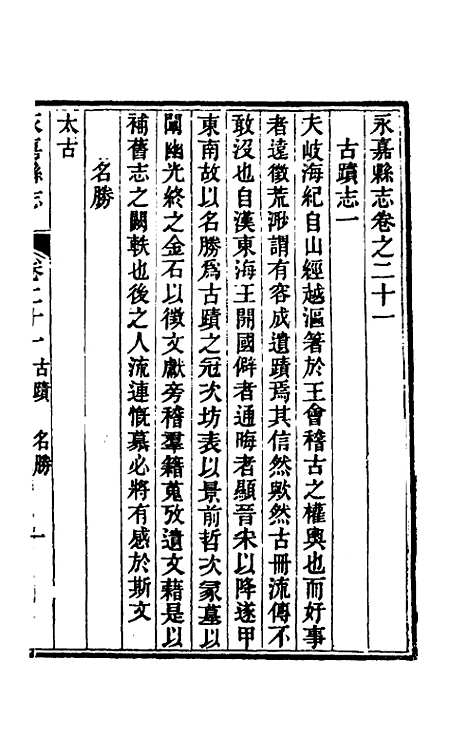 永嘉縣志卷之二十一
古蹟志一
夫岐海紀自山經越漚箸於王會稽古之權輿也而好事
者遠徵荒渺謂有容成遺蹟焉其信然歟然古冊流傳不
敢沒也自漢東海王開國僻者通晦者顯晉宋以降遂甲
東南故以名勝爲古蹟之冠次坊表以景前哲次冢墓以
闡幽光終之金石以徵文獻旁稽羣籍蒐攷遺文藉是以
補舊志之闕軼也後之人流連慨慕必將有感於斯文
名勝
太古
永嘉縣志 卷二十一古蹟 名勝 一